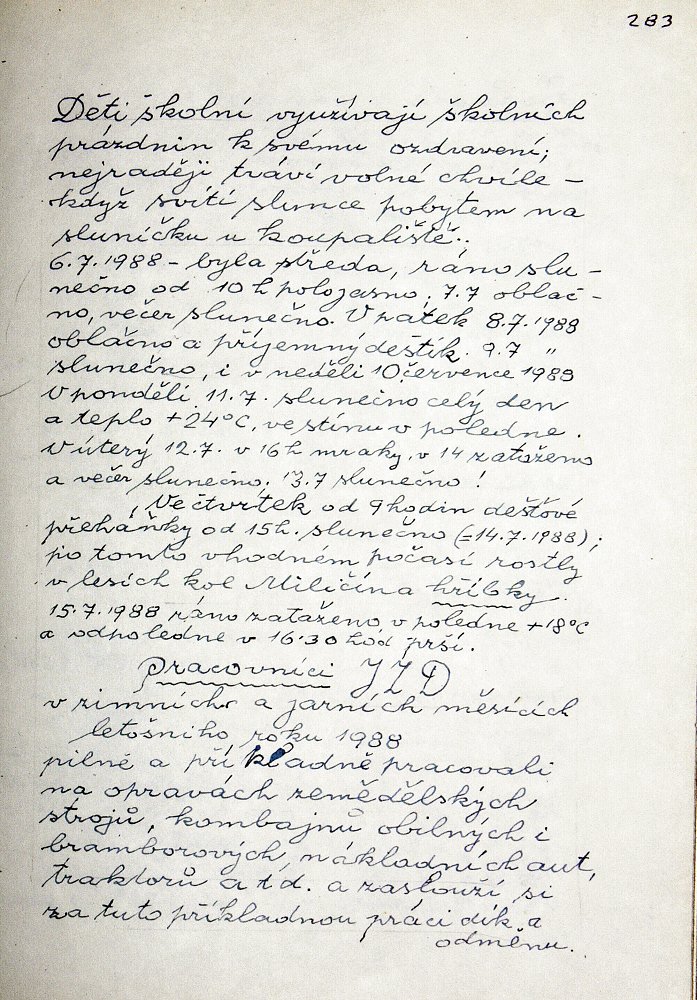 283
Děti školní využívají školních
prázdnin k svému ozdravení;
nejraději tráví volné chvíle –
když svítí slunce pobytem na
sluníčku u koupaliště.
6.7.1988 – byla středa, ráno slu –
nečno od 10 h polojasno, 7.7 oblač –
no, večer slunečno. V pátek 8.7.1988
oblačno a příjemný deštík. 9.7 "
slunečno, i v neděli 10 července 1988
V pondělí 11.7. slunečno celý den
a teplo +24°C, ve stínu v poledne.
V úterý 12.7. v 16 h mraky, v 14 zataženo
a večer slunečno. 13.7 slunečno!
Ve čtvrtek od 9 hodin dešťové
přeháňky od 15h. slunečno (=14.7.1988);
po tomto vhodném počasí rostly
v lesích kol Miličína hříbky.
15.7.1988 ráno zataženo v poledne +18°C
a odpoledne v 16.30 hod prší.
Pracovníci JZD
v zimních a jarních měsících
letošního roku 1988
pilně a příkladně pracovali
na opravách zemědělských
strojů, kombajnů obilných i
bramborových, nákladních aut,
traktorů a t d. a zaslouží si
za tuto příkladnou práci dík a
odměnu.